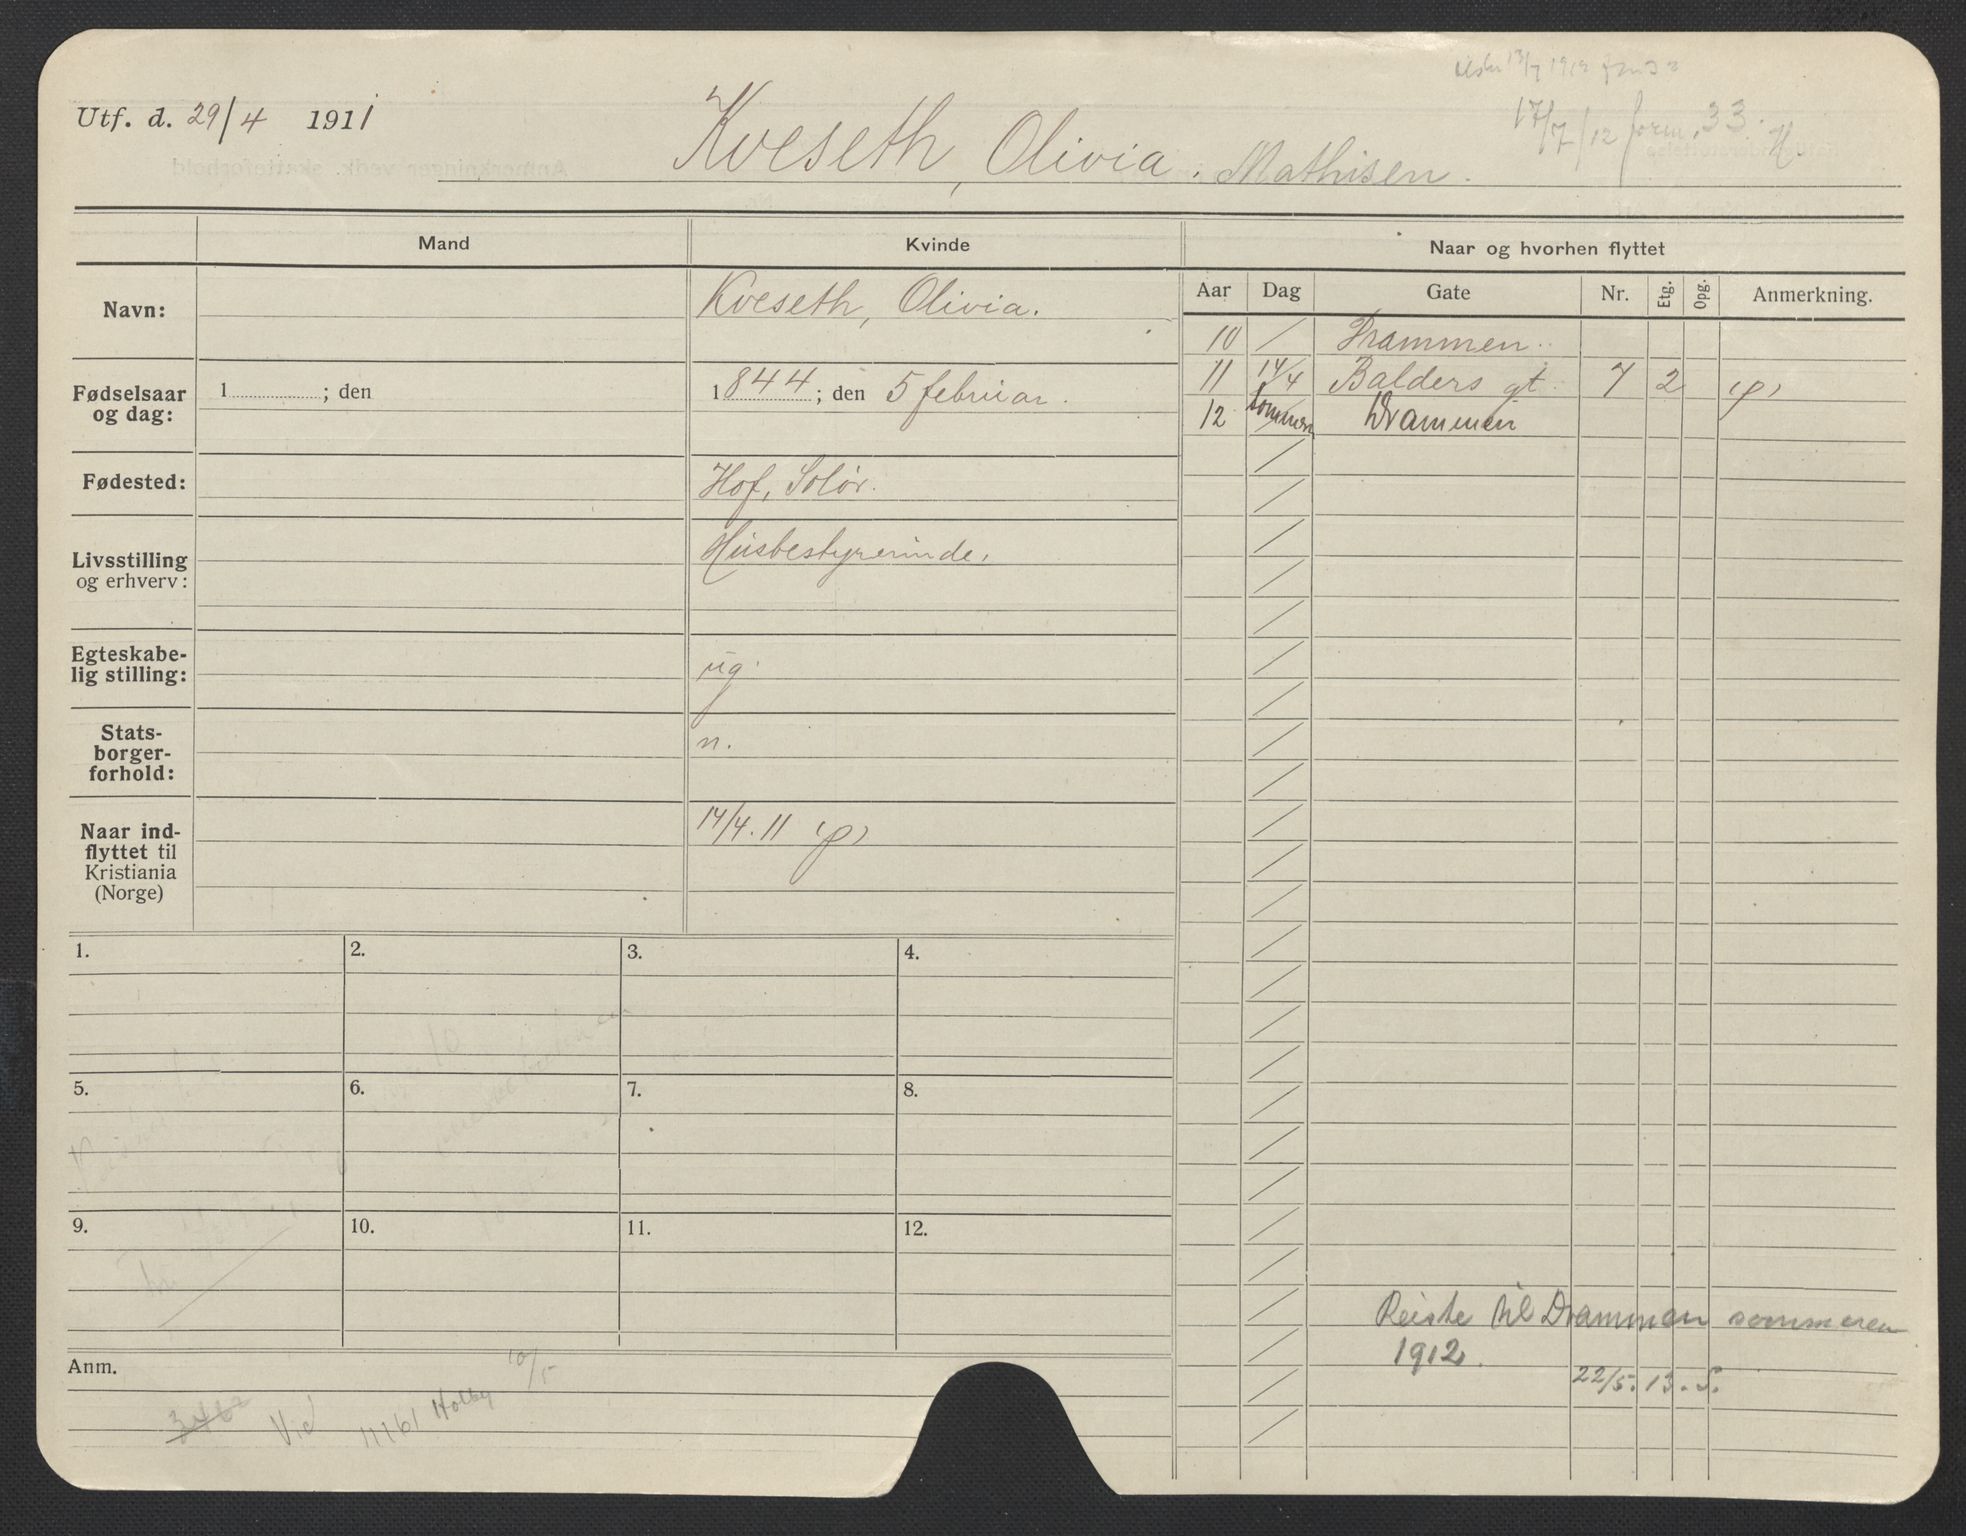 Utf. d. 29/4 1911
17/7/12 form. 33.
Kveseth, Olivia. Mathisen.
Mand
Kvinde
Naar og hvorhen flyttet
Aar Dag Gate Nr. Etg. Opg. Anmerkning.
10 Drammen.
11 14/4 Balders gt. 7 2 (p)
12 sommeren Drammen
Navn: Kveseth, Olivia.
Fødselsaar og dag: 1 ; den 1844 ; den 5 februar.
Fødested: Hof, Solør.
Livsstilling og erhverv: Husbestyrerinde.
Egteskabe-
lig stilling: ug.
Stats-
borger-
forhold: n.
Naar ind-
flyttet til
Kristiania
(Norge) 14/4. 11 (p)
1. 2. 3. 4.
5. 6. 7. 8.
9. 10. 11. 12.
Reiste til Drammen sommeren
1912.
22/5. 13. S.
Anm.
Vid 11161 Holby 10/5